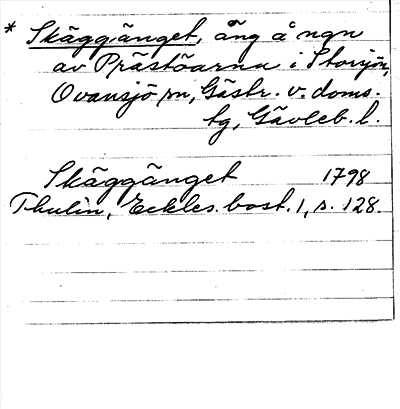 * Skäggänget, äng å ngn
av Prästöarna i Storsjön,
Ovansjö sn, Gästr. v. doms.
tg, Gävleb. l.
Skäggänget 1798
Thulin, Eckles. bost. 1, s. 128.